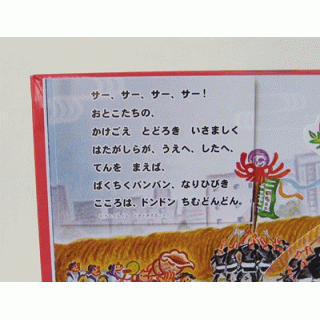 サー、サー、サー、サー!
おとこたちの、
かけごえ とどろき いさましく
はたがしらが、うえへ、したへ、
てんを まえば、
ばくちくバンバン、なりひびき
こころは、ドンドン ちむどんどん。